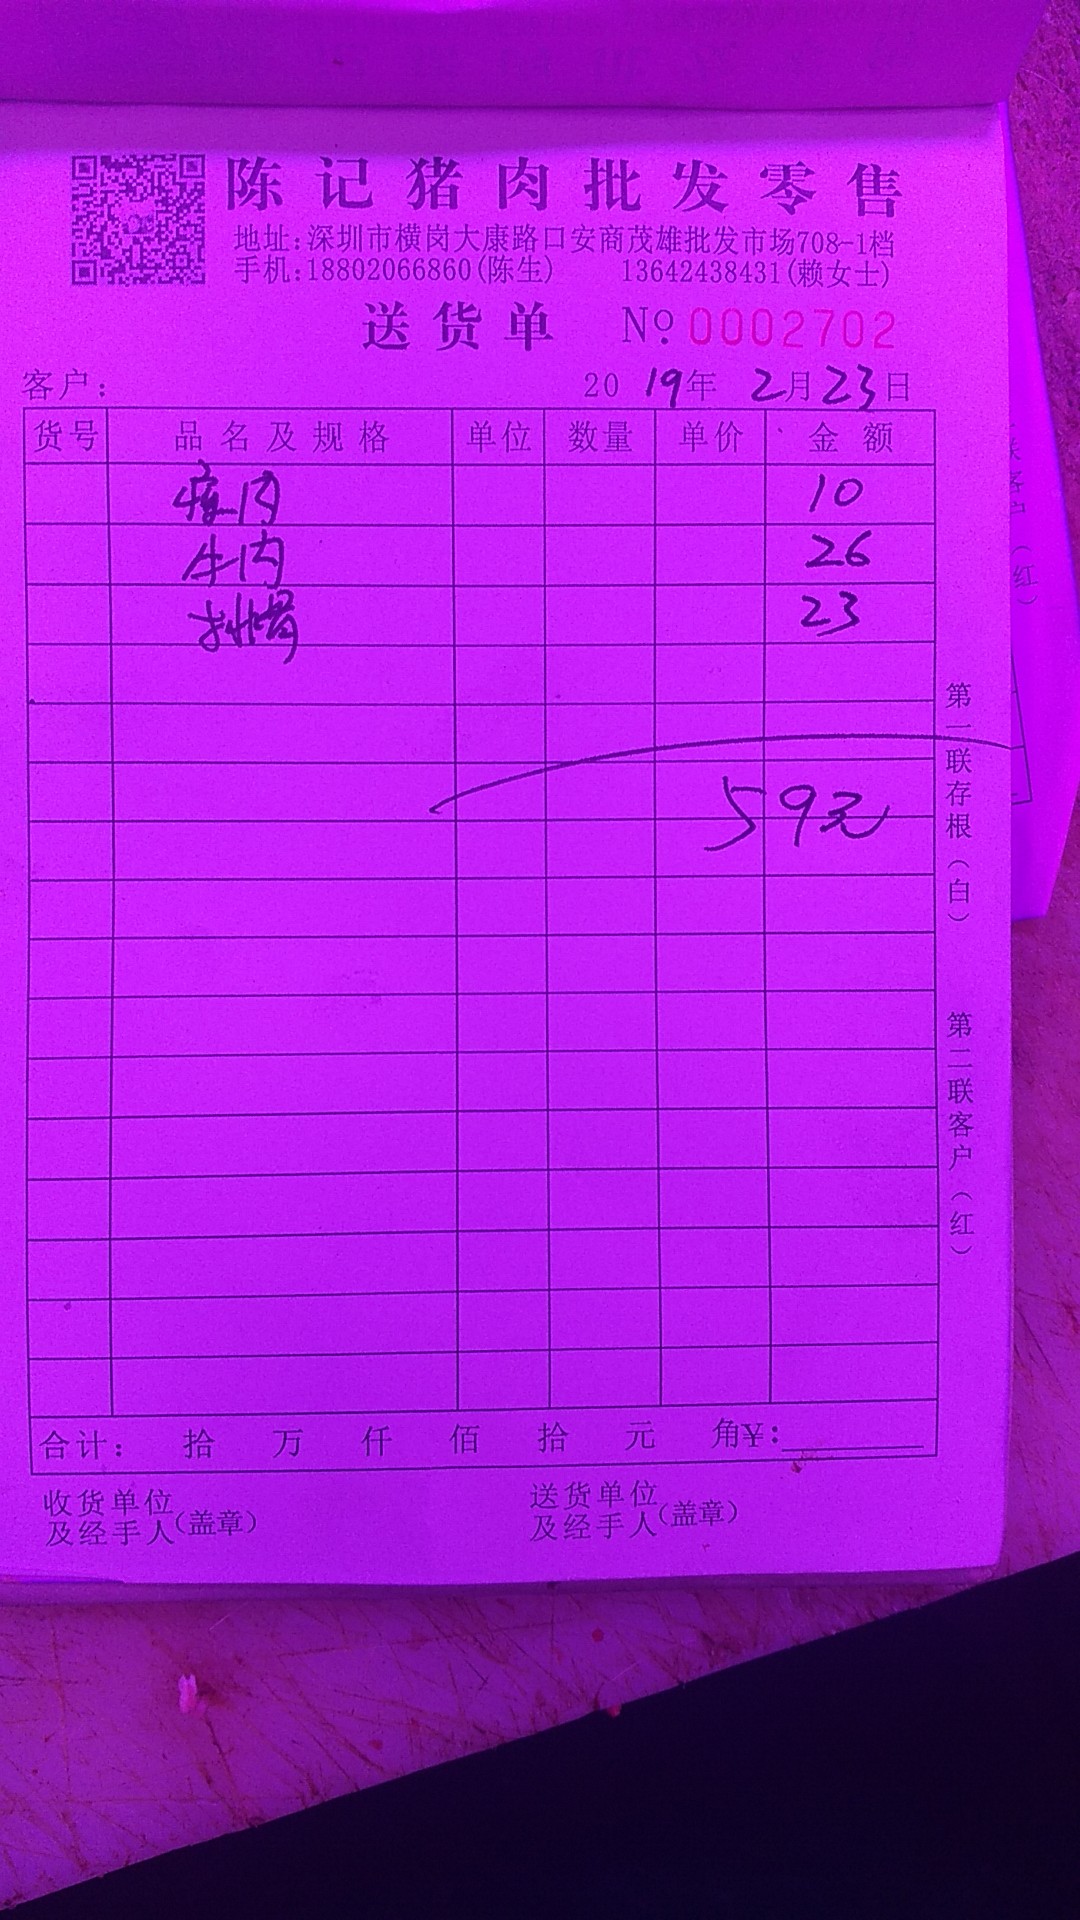 陈记猪肉批发零售
地址:深圳市横岗大康路口安商茂雄批发市场708-1档
手机:18802066860(陈生) 13642438431(赖女士)
送货单 № 0002702
客户: 2019年 2月23日
货号 品名及规格 单位 数量 单价 金额
瘦肉 10
牛肉 26
排骨 23
59元
合计: 拾 万 仟 佰 拾 元 角¥:
收货单位
及经手人(盖章)
送货单位
及经手人(盖章)
第一联存根(白)
第二联客户(红)